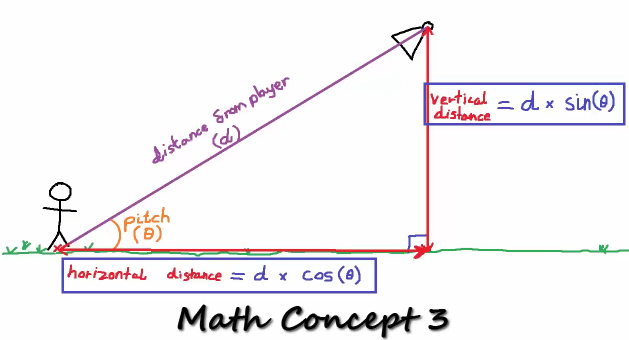 distance from player
(d)
vertical
distance = d × sin(θ)
pitch
(θ)
horizontal distance = d × cos(θ)
Math Concept 3